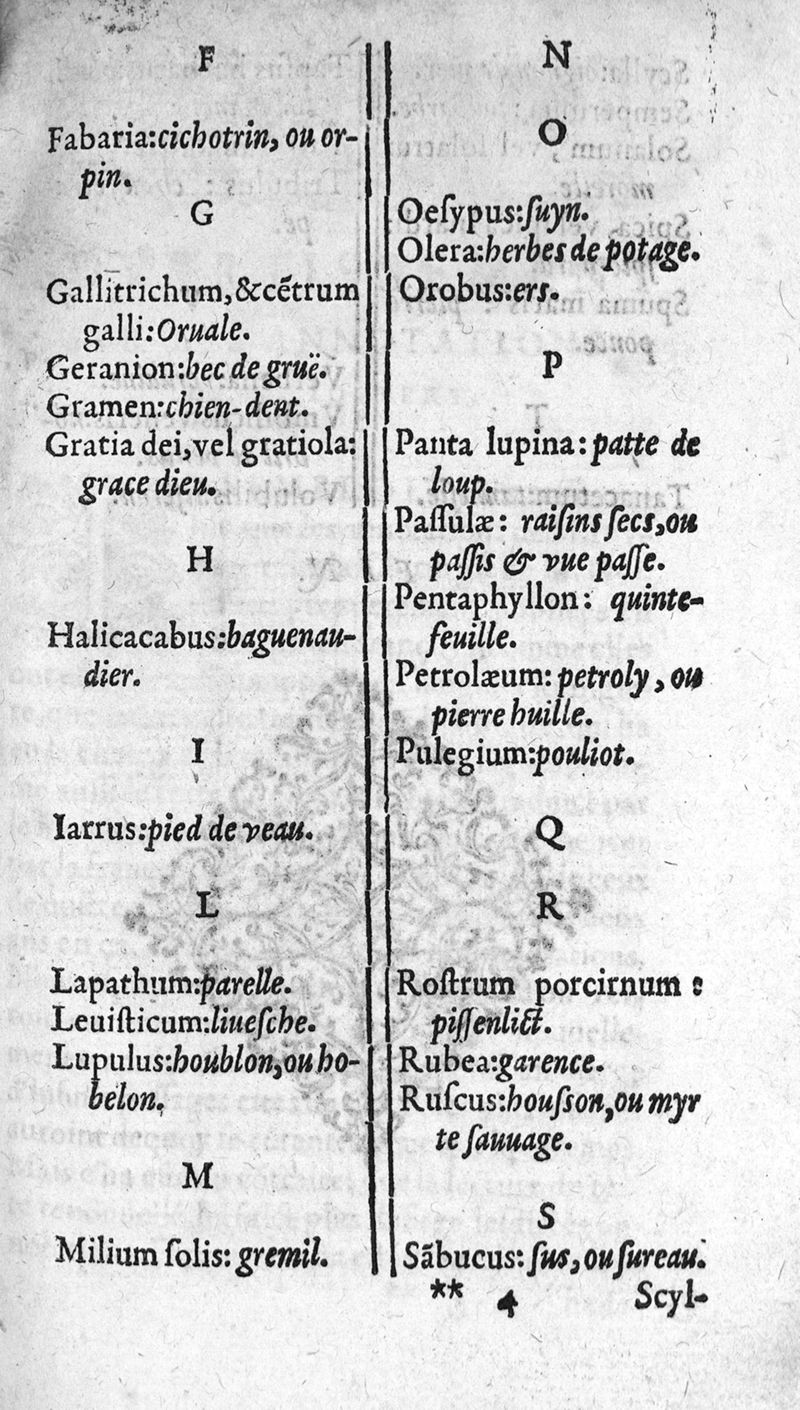 F
Fabaria:cichotrin, ou or-
pin.
G
Gallitrichum,&cẽtrum
galli:Oruale.
Geranion:bec de gruë.
Gramen:chien-dent.
Gratia dei,vel gratiola:
grace dieu.
H
Halicacabus:baguenau-
dier.
I
Iarrus:pied de veau.
L
Lapathum:parelle.
Leuiſticum:liueſche.
Lupulus:houblon,ou ho-
belon.
M
Milium ſolis: gremil.
N
O
Oeſypus:ſuyn.
Olera:herbes de potage.
Orobus:ers.
P
Panta lupina: patte de
loup.
Paſſulæ: raiſins ſecs,ou
paſſis & vue paſſe.
Pentaphyllon: quinte-
feuille.
Petrolæum: petroly, ou
pierre huille.
Pulegium:pouliot.
Q
R
Roſtrum porcirnum :
piſſenlict.
Rubea:garence.
Ruſcus:houſſon,ou myr
te ſauuage.
S
Sãbucus: ſus, ou ſureau.
** 4 Scyl-